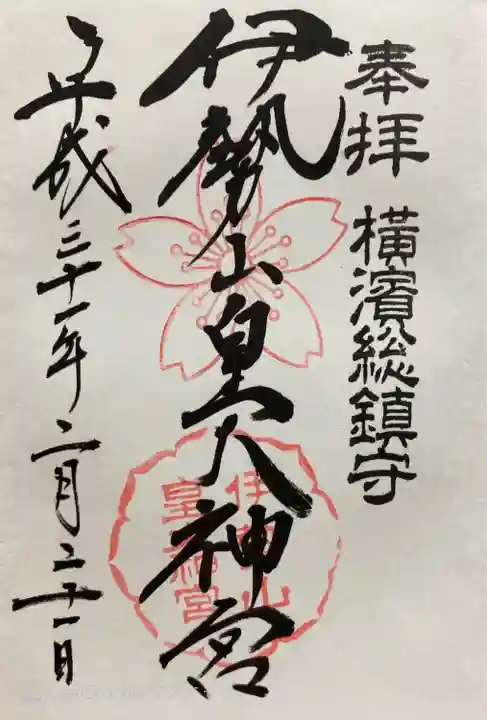 奉拝 横濱総鎮守
伊勢山皇大神宮
平成三十一年二月二十一日
伊勢山
皇大神宮